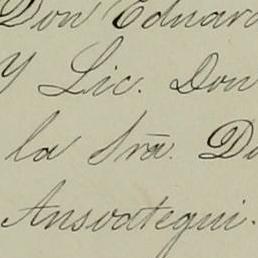 Don Eduard
Y Lic. Don
la Sra. Do
Ansvategui.